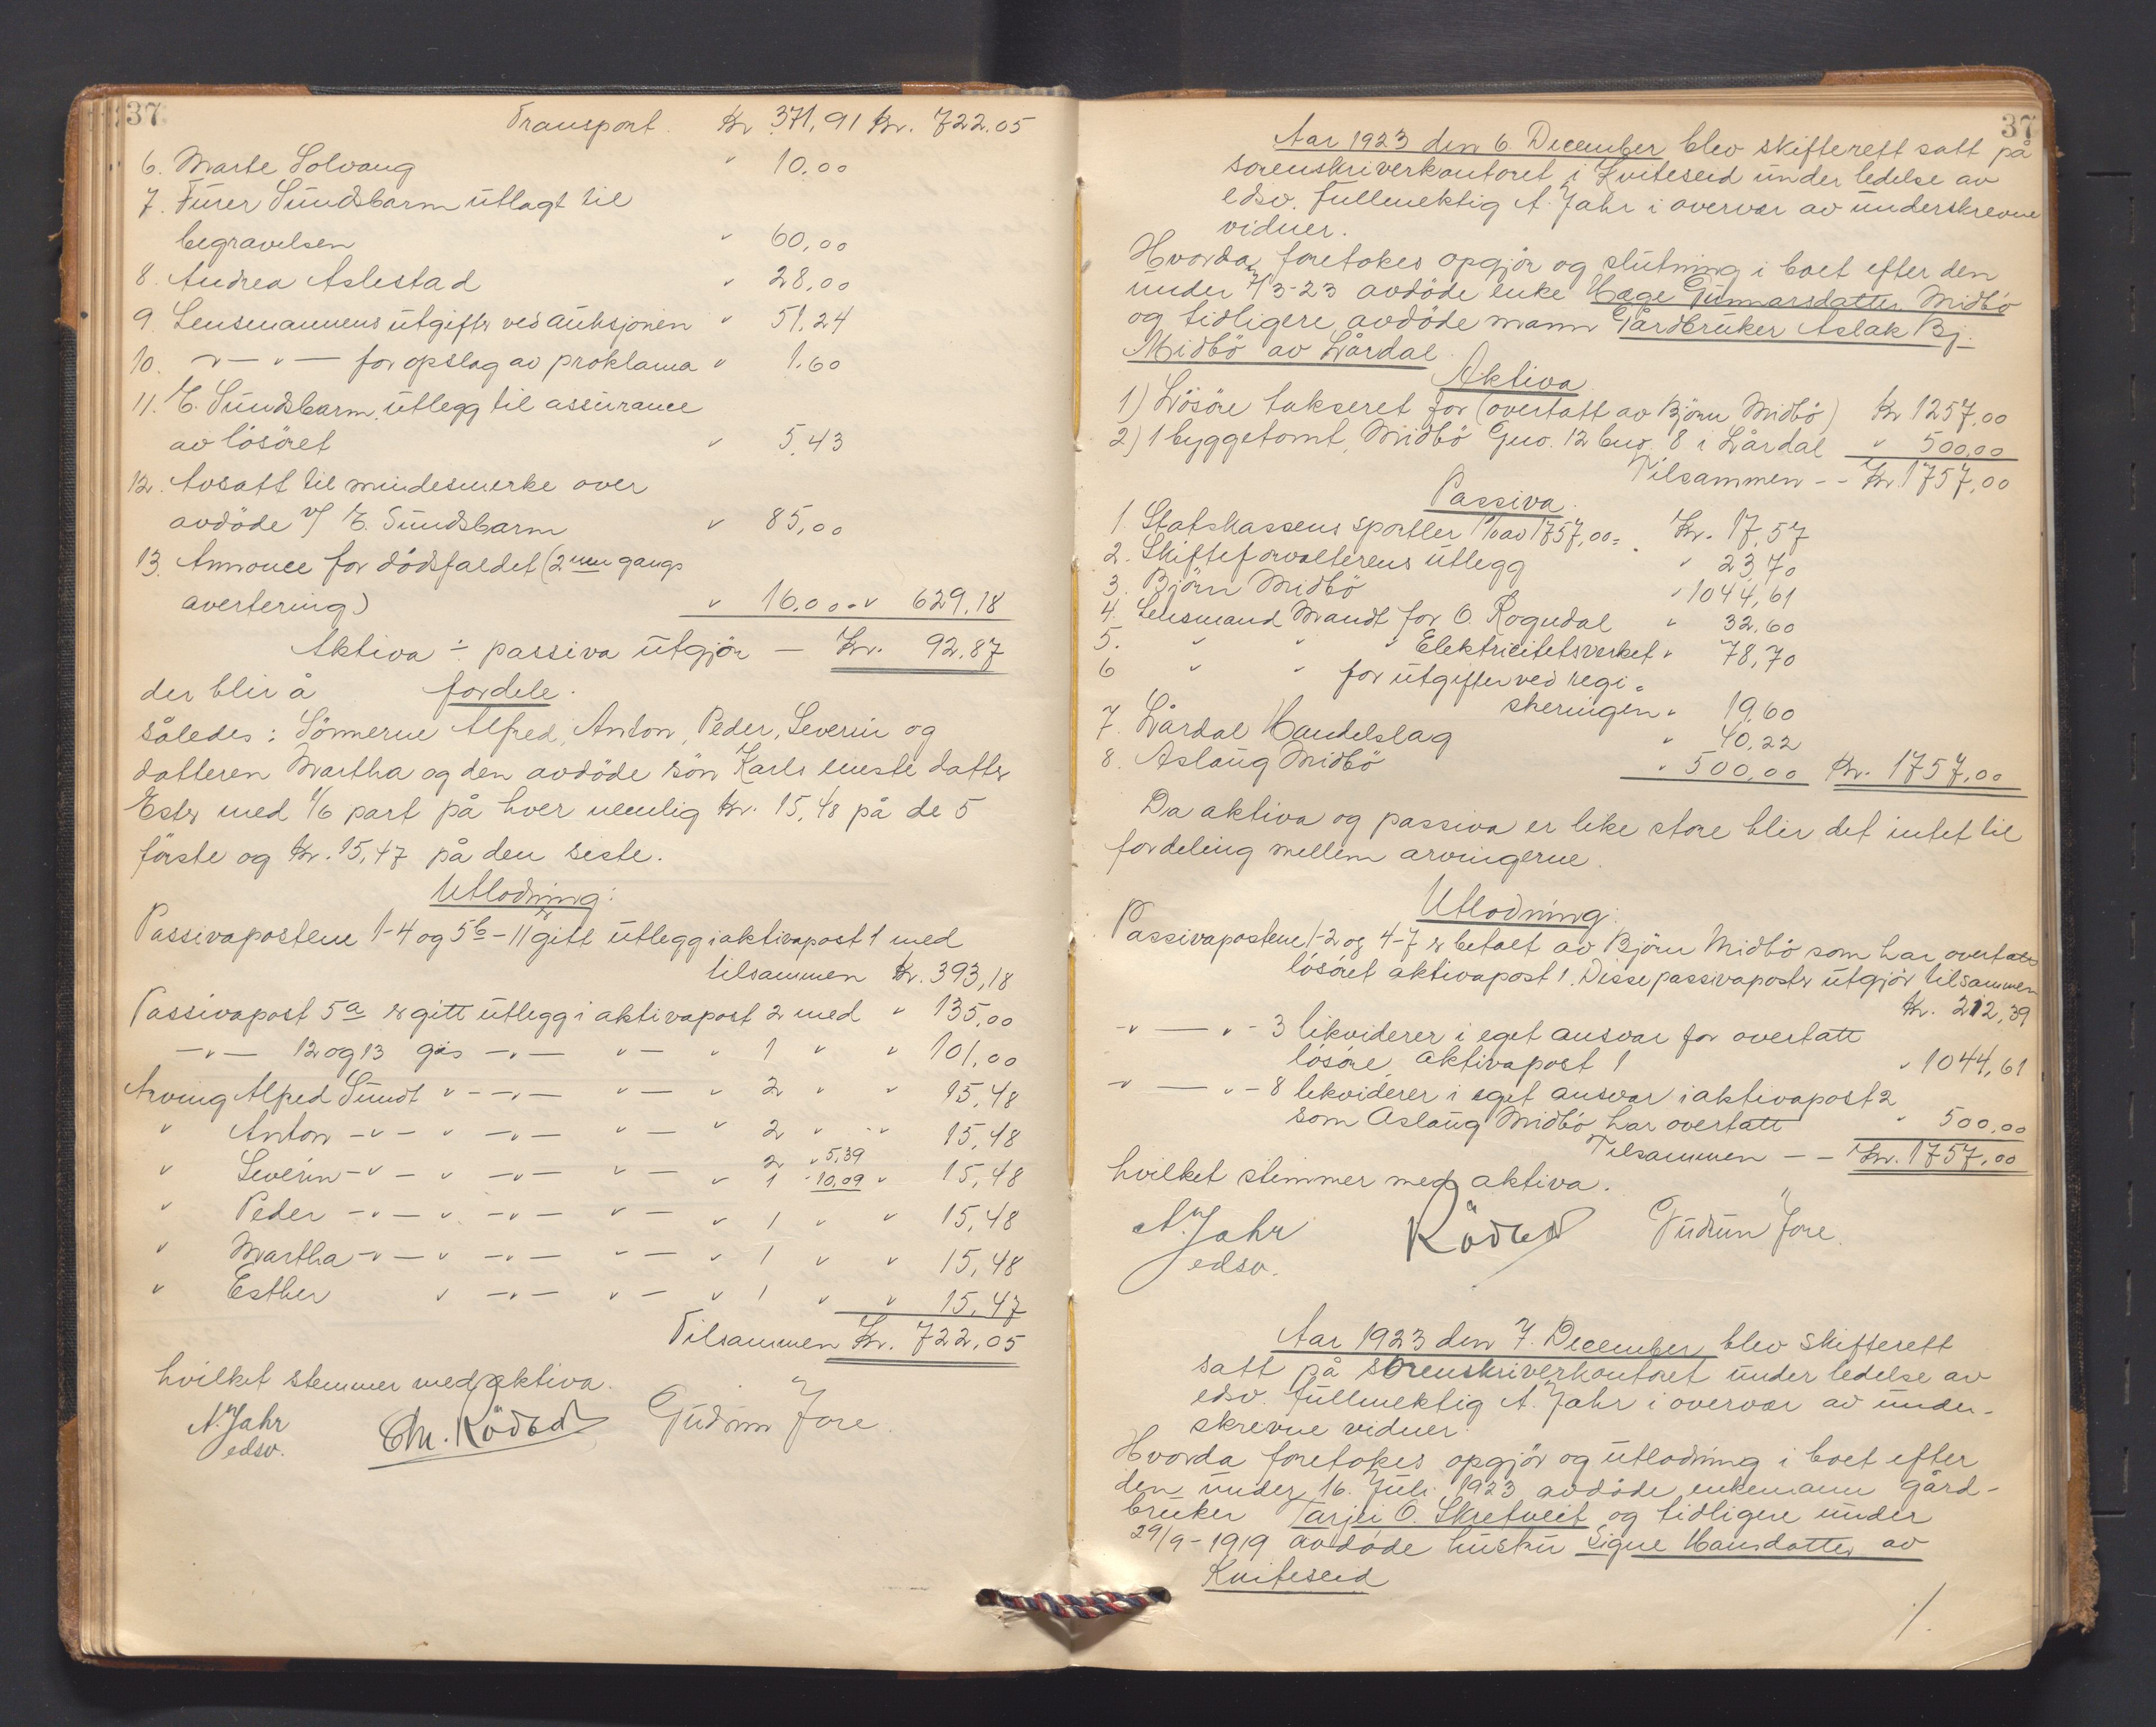 37
Transport. Kr 371,91 Kr. 722.05
6. Marte Solvang " 10.00
7. Turer Sundsbarm utlagt til
begravelsen " 60,00
8. Andrea Aslestad " 28,00
9. Lensmannens utgifter ved auksjonen " 51,24
10. -"- "- for opslag av proklama " 1.60
11. T. Sundsbarm, utlegg til assurance
av lösöret " 5,43
12. Avsatt til mindesmerke over
avdöde v/ T. Sundsbarm " 85,00
13. Annonce for dödsfaldet (2 gangs
avertering) " 16.00 = " 629,18
Aktiva ÷ passiva utgjör — Kr. 92,87
der blir å fordele.
således: Sönnerne Alfred, Anton, Peder, Severin og
datteren Martha og den avdöde sön Karls eneste datter
Ester med 1/6 part på hver nemlig kr. 15,48 på de 5
förste og kr. 15,47 på den siste.
Utlodning:
Passivapostene 1-4 og 5b - 11 er gitt utlegg i aktivapost 1 med
tilsammen Kr. 393,18
Passivapost 5a er gitt utlegg i aktivapost 2 med " 135,00
-"- 12 og 13 gis -"- "- " 1 " " 101,00
Arving Alfred Sundt "--"- "- " 2 " " 15,48
" Anton -"- " -"- "- " 2 " " 15,48
" Severin -"- " -"- "- 2 " 5,39
" 1 " 10,09 " 15,48
" Peder -"- " -"- "- " 1 " " 15,48
" Martha -"- " -"- "- " 1 " " 15,48
" Esther " -"- "- " 1 " " 15,47
Tilsammen Kr. 722,05
hvilket stemmer med aktiva.
A. Jahr
edsv.
Chr. Rödbøl
Gudrun Jore
37
Aar 1923 den 6 December blev skifterett satt på
sorenskriverkontoret i Kviteseid under ledelse av
edsv. fullmektig A. Jahr i overvær av underskrevne
vidner.
Hvorda foretokes opgjör og slutning i boet efter den
under 3-23 avdöde enke Hæge Gunnarsdatter Midbö
og tidligere avdöde mann Gårdbruker Aslak Bj.
Midbö av Lårdal.
Aktiva
1) Lösöre takseret for (overtatt av Björn Midbö) Kr 1257,00
2) 1 byggetomt, Midbö Gno. 12 bno. 8 i Lårdal " 500,00
Tilsammen -- Kr 1757,00
Passiva.
1 Statskassens sportler 1% av 1757,00 = Kr. 17,57
2. Skifteforvalterens utlegg " 23,70
3. Björn Midbö " 1044,61
4. Lensmand Mandt for O. Rogndal " 32,60
5. " " " Elektricitetsverket " 78,70
6 " " for utgifter ved regi-
streringen " 19,60
7. Lårdal Handelslag " 40,22
8. Aslaug Midbö " 500,00 Kr. 1757,00
Da aktiva og passiva er like store blir det intet til
fordeling mellem arvingerne.
Utlodning.
Passivapostene 1-2 og 4-7 er betalt av Björn Midbö som har overtatt
lösöret aktivapost 1. Disse passivaposter utgjör tilsammen
Kr. 212,39
-"-- "- 3 likviderer i eget ansvar for overtatt
lösöre, aktivapost 1 " 1044,61
-"-- "- 8 likviderer i eget ansvar i aktivapost 2
som Aslaug Midbö har overtatt " 500,00
Tilsammen -- Kr. 1757,00
hvilket stimmer med aktiva.
A. Jahr
edsv.
Rödbøl
Gudrun Jore.
Aar 1923 den 7. December blev skifterett
satt på sorenskriverkontoret under ledelse av
edsv. fullmektig A. Jahr i overvær av under-
skrevne vidner.
Hvorda foretokes opgjör og utlodning i boet efter
den under 16. Juli 1923 avdöde enkemann gård-
bruker Tarjei O. Skretveit og tidligere under
29/9-1919 avdöde hustru Signe Hansdatter av
Kviteseid
./.